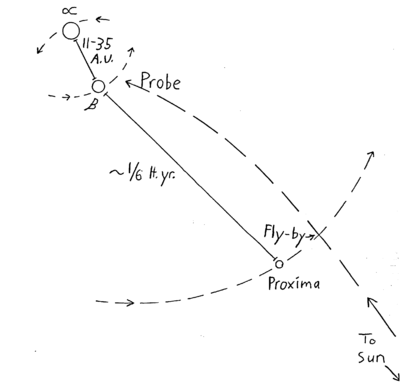 ∝
11-35
A.U.
B
Probe
~1/6 lt.yr.
Fly-by
Proxima
To
Sun